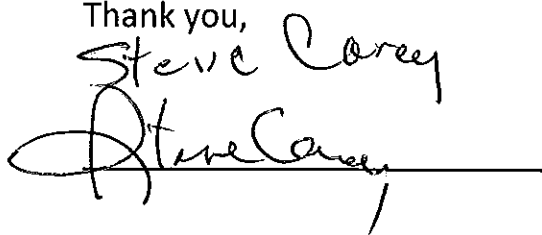 Thank you,
Steve Carey
Steve Carey